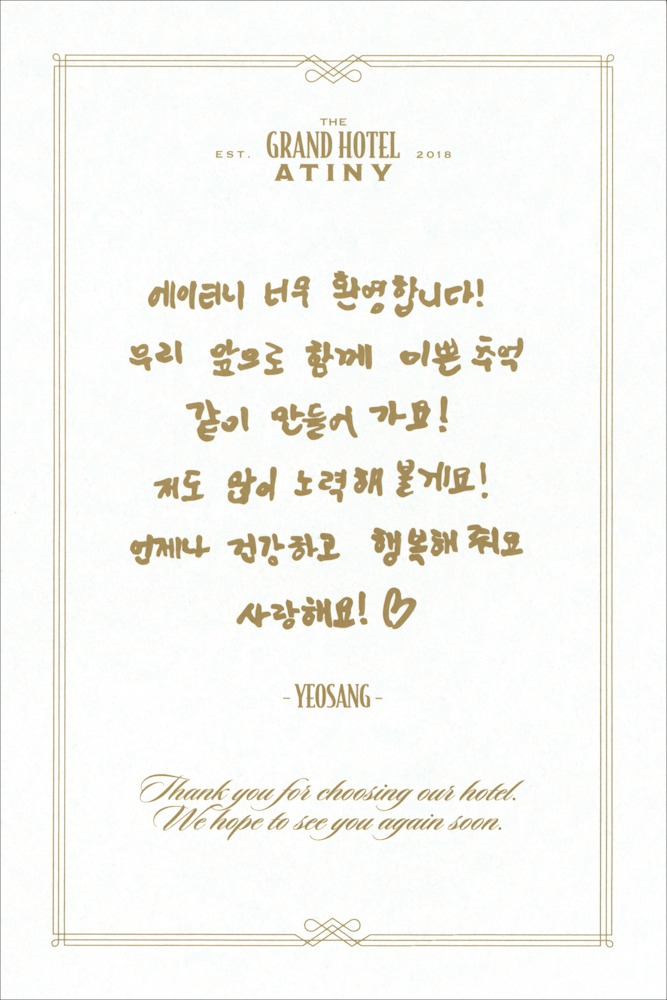 THE
EST. GRAND HOTEL 2018
ATINY
에이티니 너무 환영합니다!
우리 앞으로 함께 이쁜 추억
같이 만들어 가요!
저도 많이 노력해 볼게요!
언제나 건강하고 행복해줘요
사랑해요! ♡
- YEOSANG -
Thank you for choosing our hotel.
We hope to see you again soon.